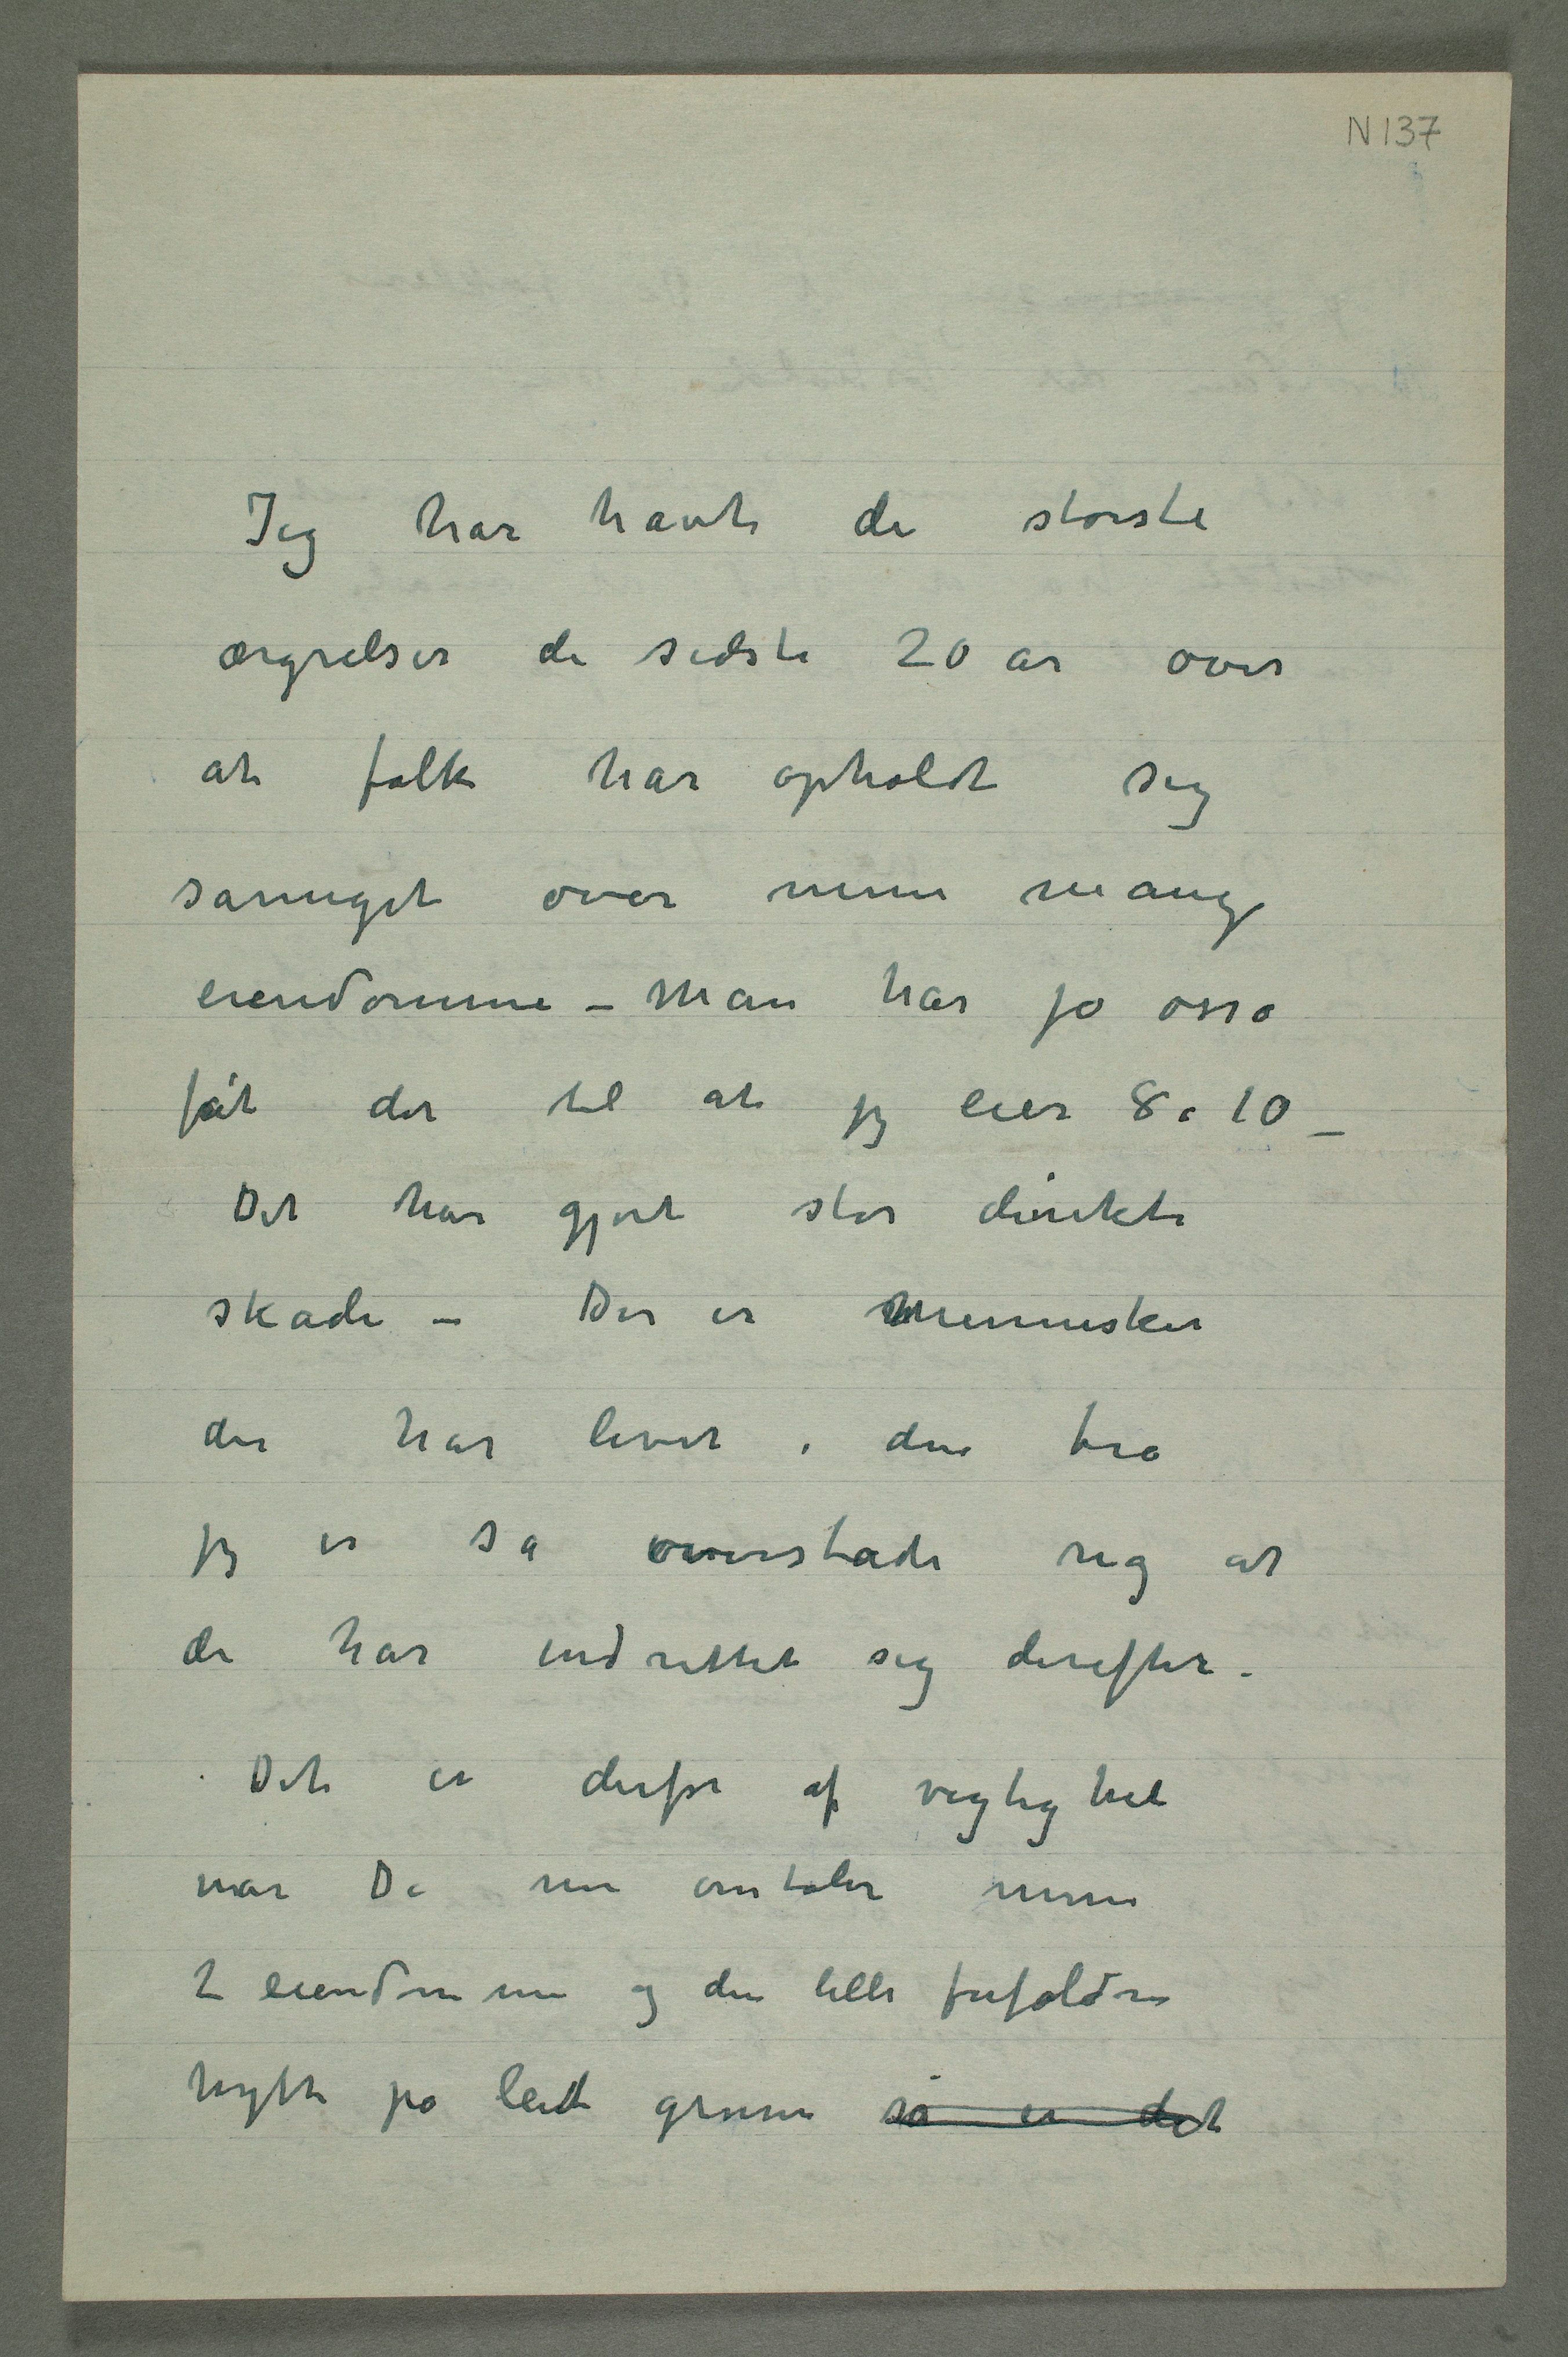 N 137
Jeg har havt de største
ærgrelser de sidste 20 år over
at folk har opholdt sig
såmeget over mine mange
eiendomme – Man har jo osså
fåt det til at jeg eier 8 a 10 –
Det har gjort stor direkte
skade – Der er Mennesker
der har levet i den tro
jeg er så overstade rig at
de har indrettet sig derefter.
Det er derfor af vigtighet
når De nu omtaler mine
2 eiendomme og den lille
hytte på leiet grunn så er det